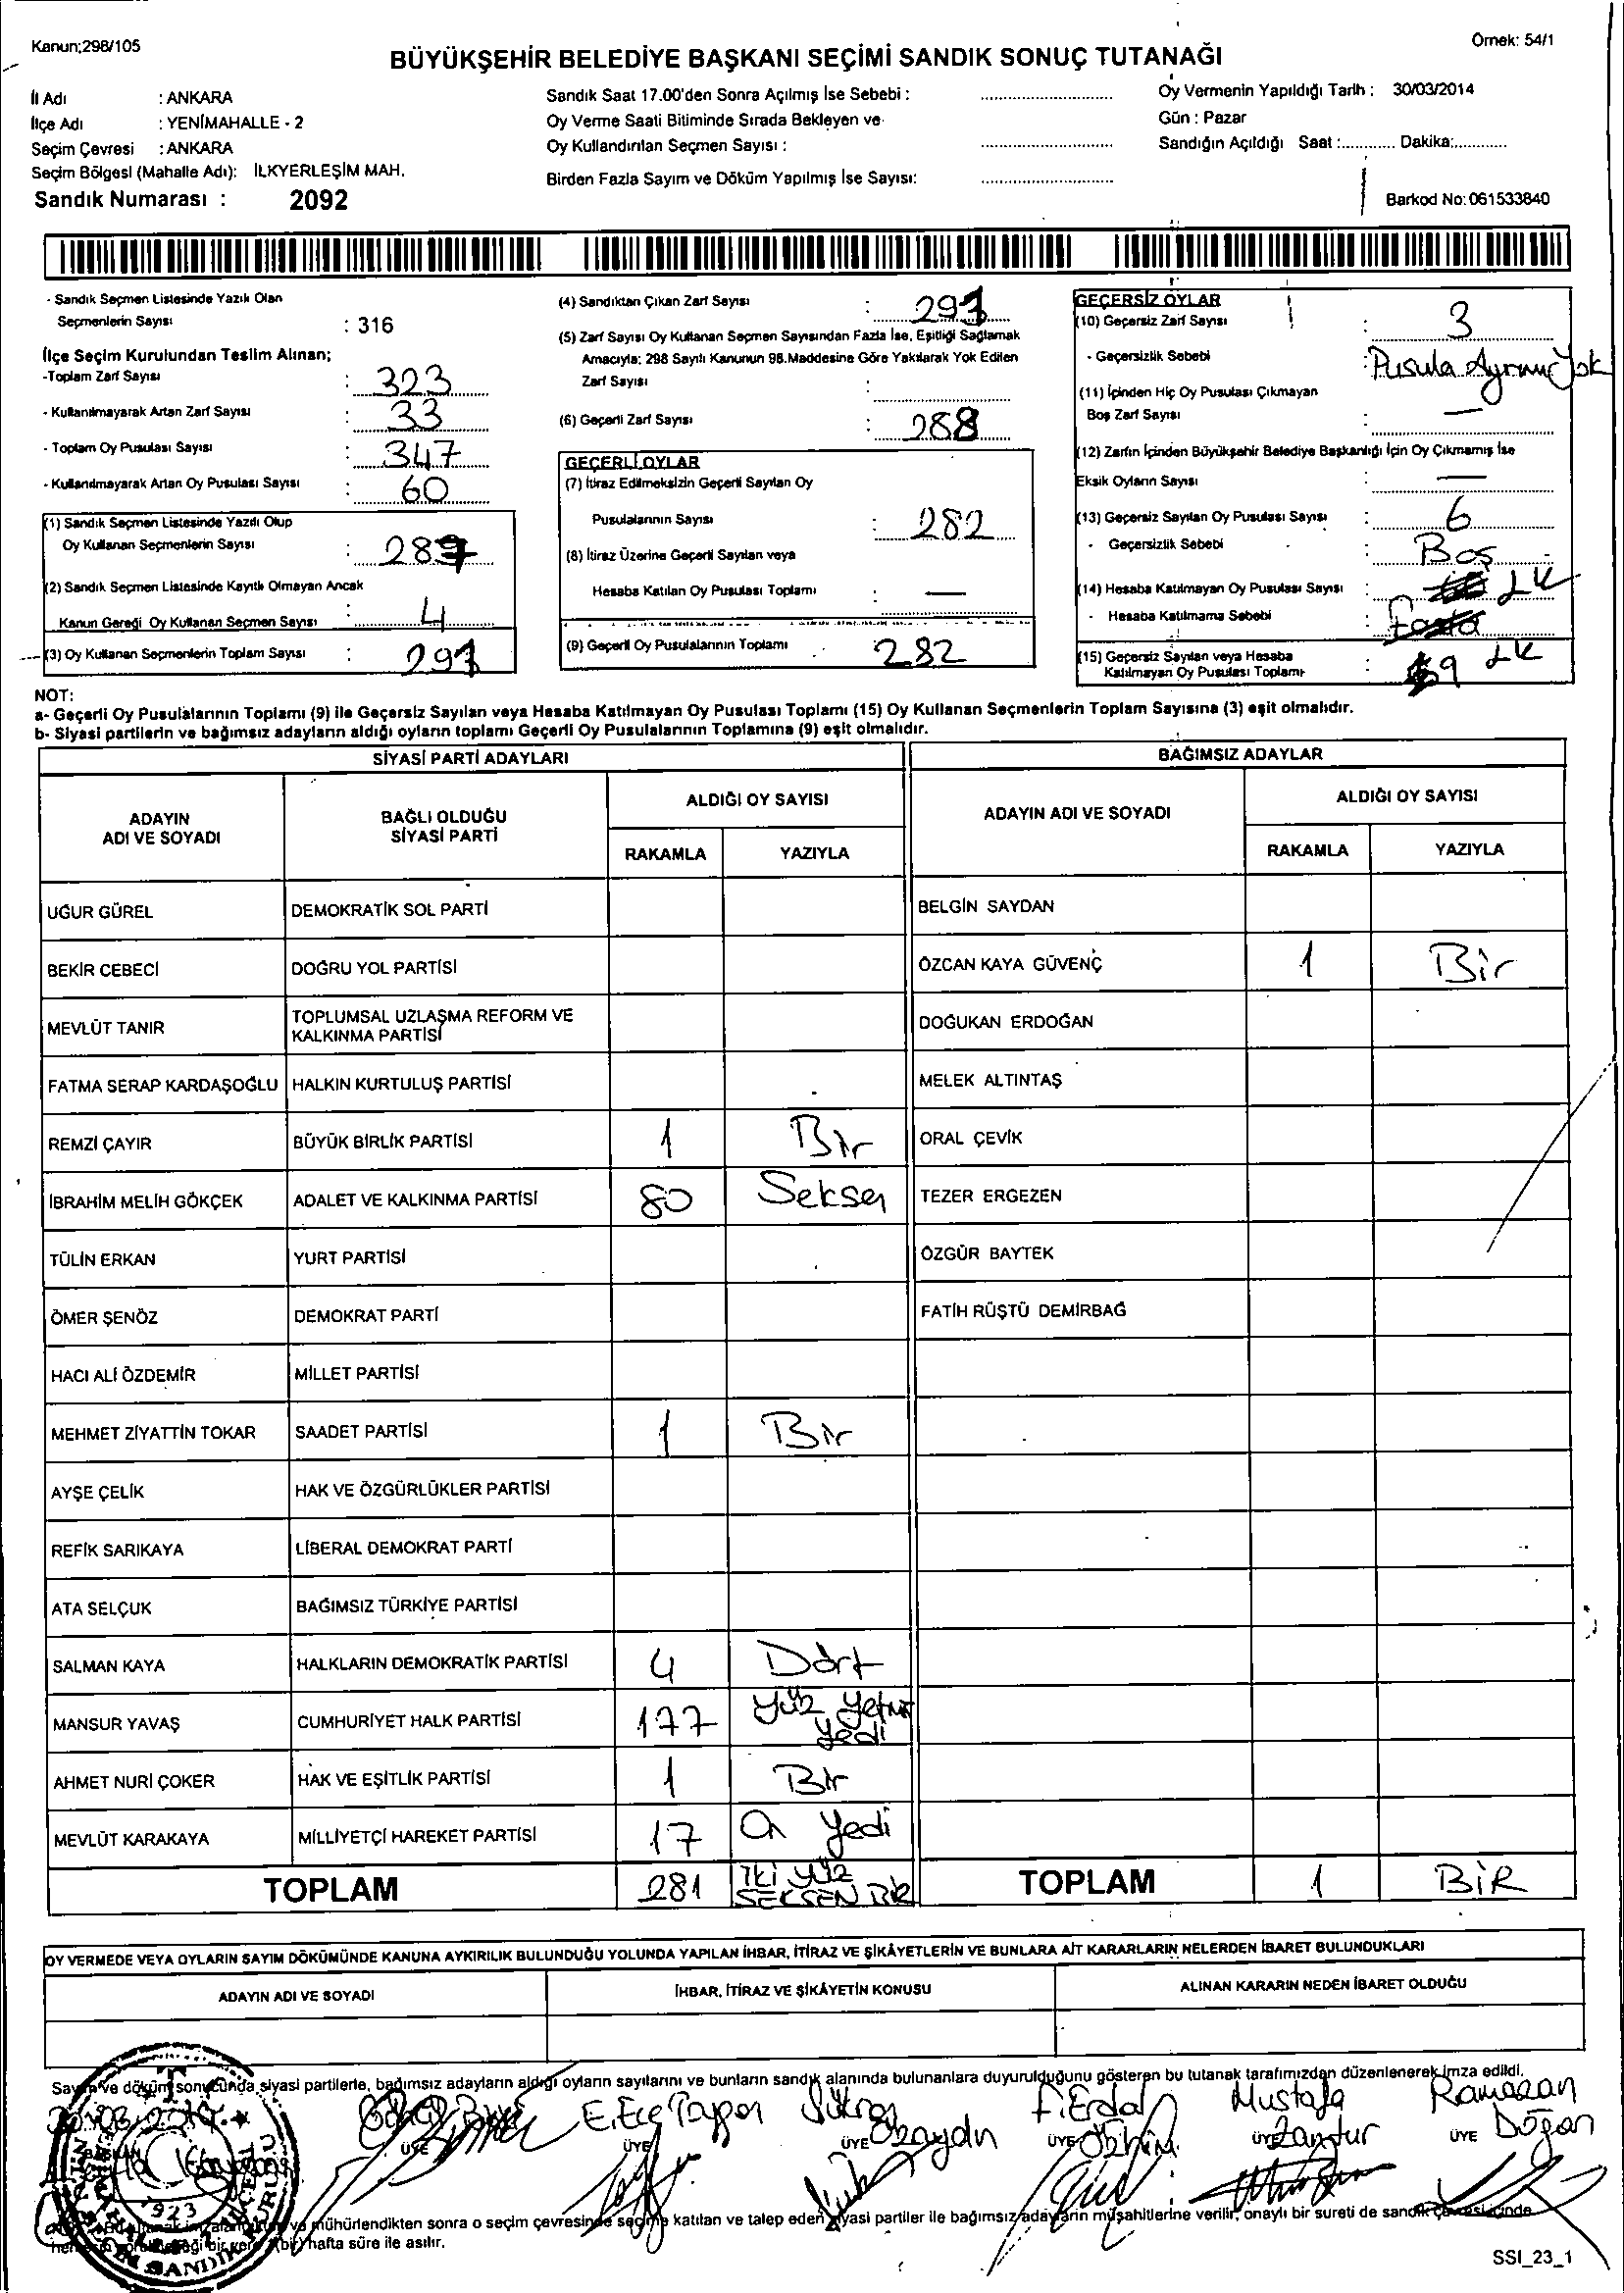 Kanun;298/105
Örnek: 54/1
BÜYÜKŞEHİR BELEDİYE BAŞKANI SEÇİMİ SANDIK SONUÇ TUTANAĞI
İl Adı : ANKARA
İlçe Adı : YENİMAHALLE - 2
Seçim Çevresi : ANKARA
Seçim Bölgesi (Mahalle Adı): İLKYERLEŞİM MAH.
Sandık Numarası : 2092
Sandık Saat 17.00'den Sonra Açılmış İse Sebebi :
Oy Verme Saati Bitiminde Sırada Bekleyen ve
Oy Kullandırılan Seçmen Sayısı :
Birden Fazla Sayım ve Döküm Yapılmış İse Sayısı:
Oy Vermenin Yapıldığı Tarih : 30/03/2014
Gün : Pazar
Sandığın Açıldığı Saat :............ Dakika:............
Barkod No:061533840
- Sandık Seçmen Listesinde Yazılı Olan
Seçmenlerin Sayısı : 316
İlçe Seçim Kurulundan Teslim Alınan;
-Toplam Zarf Sayısı : 323
- Kullanılmayarak Artan Zarf Sayısı : 33
- Toplam Oy Pusulası Sayısı : 347
- Kullanılmayarak Artan Oy Pusulası Sayısı : 60
(1) Sandık Seçmen Listesinde Yazılı Olup
Oy Kullanan Seçmenlerin Sayısı : 287
(2) Sandık Seçmen Listesinde Kayıtlı Olmayan Ancak
Kanun Gereği Oy Kullanan Seçmen Sayısı : 4
(3) Oy Kullanan Seçmenlerin Toplam Sayısı : 291
(4) Sandıktan Çıkan Zarf Sayısı : 291
(5) Zarf Sayısı Oy Kullanan Seçmen Sayısından Fazla İse, Eşitliği Sağlamak
Amacıyla; 298 Sayılı Kanunun 98.Maddesine Göre Yakılarak Yok Edilen
Zarf Sayısı :
(6) Geçerli Zarf Sayısı : 288
GEÇERLİ OYLAR
(7) İtiraz Edilmeksizin Geçerli Sayılan Oy
Pusulalarının Sayısı : 282
(8) İtiraz Üzerine Geçerli Sayılan veya
Hesaba Katılan Oy Pusulası Toplamı : —
(9) Geçerli Oy Pusulalarının Toplamı : 282
GEÇERSİZ OYLAR
(10) Geçersiz Zarf Sayısı : 3
- Geçersizlik Sebebi : Pusula Ayrımı Yok
(11) İçinden Hiç Oy Pusulası Çıkmayan
Boş Zarf Sayısı : —
(12) Zarfın İçinden Büyükşehir Belediye Başkanlığı İçin Oy Çıkmamış İse
Eksik Oyların Sayısı : —
(13) Geçersiz Sayılan Oy Pusulası Sayısı : 6
- Geçersizlik Sebebi : Boş
(14) Hesaba Katılmayan Oy Pusulası Sayısı :
- Hesaba Katılmama Sebebi :
(15) Geçersiz Sayılan veya Hesaba
Katılmayan Oy Pusulası Toplamı : 9
NOT:
a- Geçerli Oy Pusulalarının Toplamı (9) ile Geçersiz Sayılan veya Hesaba Katılmayan Oy Pusulası Toplamı (15) Oy Kullanan Seçmenlerin Toplam Sayısına (3) eşit olmalıdır.
b- Siyasi partilerin ve bağımsız adayların aldığı oyların toplamı Geçerli Oy Pusulalarının Toplamına (9) eşit olmalıdır.
SİYASİ PARTİ ADAYLARI
BAĞIMSIZ ADAYLAR
ADAYIN
ADI VE SOYADI
BAĞLI OLDUĞU
SİYASİ PARTİ
ALDIĞI OY SAYISI
RAKAMLA YAZIYLA
ADAYIN ADI VE SOYADI
ALDIĞI OY SAYISI
RAKAMLA YAZIYLA
UĞUR GÜREL DEMOKRATİK SOL PARTİ BELGİN SAYDAN
BEKİR CEBECİ DOĞRU YOL PARTİSİ ÖZCAN KAYA GÜVENÇ 1 Bir
MEVLÜT TANIR TOPLUMSAL UZLAŞMA REFORM VE
KALKINMA PARTİSİ DOĞUKAN ERDOĞAN
FATMA SERAP KARDAŞOĞLU HALKIN KURTULUŞ PARTİSİ MELEK ALTINTAŞ
REMZİ ÇAYIR BÜYÜK BİRLİK PARTİSİ 1 Bir ORAL ÇEVİK
İBRAHİM MELİH GÖKÇEK ADALET VE KALKINMA PARTİSİ 80 Seksen TEZER ERGEZEN
TÜLİN ERKAN YURT PARTİSİ ÖZGÜR BAYTEK
ÖMER ŞENÖZ DEMOKRAT PARTİ FATİH RÜŞTÜ DEMİRBAĞ
HACI ALİ ÖZDEMİR MİLLET PARTİSİ
MEHMET ZİYATTİN TOKAR SAADET PARTİSİ 1 Bir
AYŞE ÇELİK HAK VE ÖZGÜRLÜKLER PARTİSİ
REFİK SARIKAYA LİBERAL DEMOKRAT PARTİ
ATA SELÇUK BAĞIMSIZ TÜRKİYE PARTİSİ
SALMAN KAYA HALKLARIN DEMOKRATİK PARTİSİ 4 Dört
MANSUR YAVAŞ CUMHURİYET HALK PARTİSİ 177 Yüz Yetmiş
Yedi
AHMET NURİ ÇOKER HAK VE EŞİTLİK PARTİSİ 1 Bir
MEVLÜT KARAKAYA MİLLİYETÇİ HAREKET PARTİSİ 17 On Yedi
TOPLAM 281 İki Yüz
SEKSEN BİR
TOPLAM 1 BİR
OY VERMEDE VEYA OYLARIN SAYIM DÖKÜMÜNDE KANUNA AYKIRILIK BULUNDUĞU YOLUNDA YAPILAN İHBAR, İTİRAZ VE ŞİKÂYETLERİN VE BUNLARA AİT KARARLARIN NELERDEN İBARET BULUNDUKLARI
ADAYIN ADI VE SOYADI İHBAR, İTİRAZ VE ŞİKÂYETİN KONUSU ALINAN KARARIN NEDEN İBARET OLDUĞU
Sayım ve döküm sonucunda siyasi partilerle, bağımsız adayların aldığı oyların sayılarını ve bunların sandık alanında bulunanlara duyurulduğunu gösteren bu tutanak tarafımızdan düzenlenerek imza edildi.
BAŞKAN ÜYE ÜYE ÜYE ÜYE ÜYE ÜYE
E. Ece Mustafa Ramazan
Doğan
1923
ve mühürlendikten sonra o seçim çevresinde seçime katılan ve talep eden siyasi partiler ile bağımsız adayların müşahitlerine verilir, onaylı bir sureti de sandık çevresi içinde
hafta süre ile asılır.
SSI_23_1